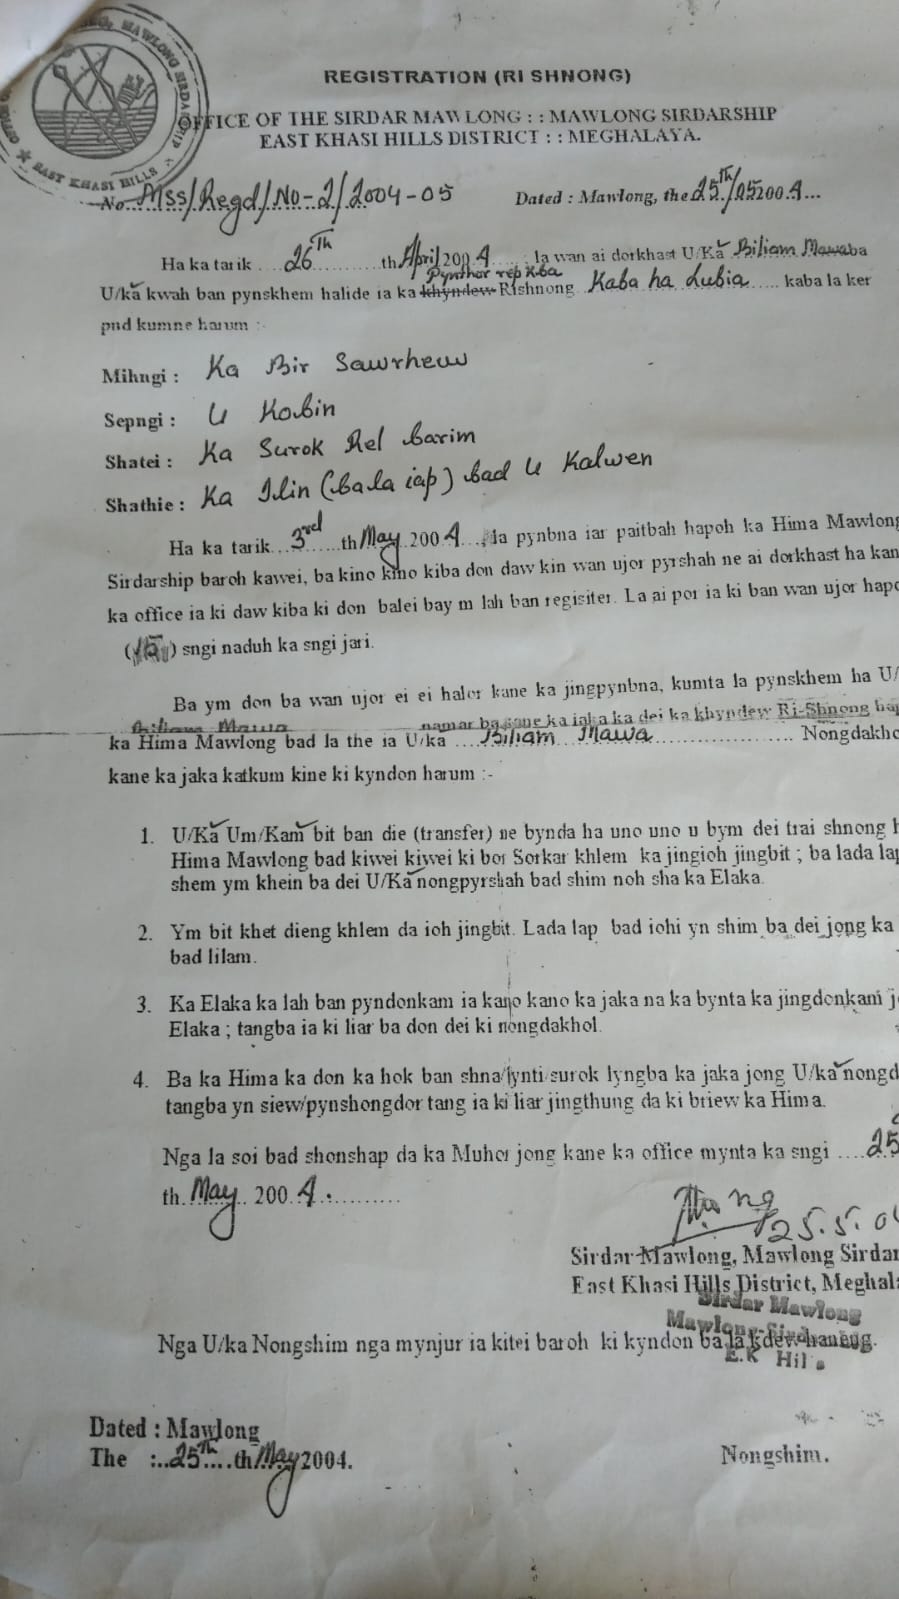 MAWLONG SIRDARSHIP
EAST KHASI HILLS
REGISTRATION (RI SHNONG)
OFFICE OF THE SIRDAR MAWLONG : : MAWLONG SIRDARSHIP
EAST KHASI HILLS DISTRICT : : MEGHALAYA.
No. Mss/Regd/No-2/2004-05 Dated : Mawlong, the 25th/05 2004...
Ha ka tarik ....26Th......th April 2004...... la wan ai dorkhast U/Ka Biliam Mawa ba
Pynthor rep kba
U/ka kwah ban pynskhem halide ia ka khyndew Rishnong Kaba ha Lubia..... kaba la ker
pud kumne harum :-
Mihngi : Ka Bir Sawrheuw
Sepngi : U Kobin
Shatei : Ka Surok Rel barim
Shathie : Ka Ilin (bala iap) bad U Kalwen
Ha ka tarik...3rd......th May 2004..., la pynbna iar paitbah hapoh ka Hima Mawlong
Sirdarship baroh kawei, ba kino kino kiba don daw kin wan ujor pyrshah ne ai dorkhast ha kan
ka office ia ki daw kiba ki don balei bay m lah ban regisiter. La ai por ia ki ban wan ujor hapo
(15) sngi naduh ka sngi jari.
Ba ym don ba wan ujor ei ei halor kane ka jingpynbna, kumta la pynskhem ha U/
Biliam Mawa namar ba kane ka jaka ka dei ka khyndew Ri-Shnong hap
ka Hima Mawlong bad la the ia U/ka ....Biliam Mawa.................... Nongdakho
kane ka jaka katkum kine ki kyndon harum :-
1. U/Ka Um/Kam bit ban die (transfer) ne bynda ha uno uno u bym dei trai shnong h
Hima Mawlong bad kiwei kiwei ki bor Sorkar khlem ka jingioh jingbit ; ba lada lap
shem ym khein ba dei U/Ka nongpyrshah bad shim noh sha ka Elaka.
2. Ym bit khet dieng khlem da ioh jingbit. Lada lap bad iohi yn shim ba dei jong ka
bad lilam.
3. Ka Elaka ka lah ban pyndonkam ia kano kano ka jaka na ka bynta ka jingdonkam j
Elaka ; tangba ia ki liar ba don dei ki nongdakhol.
4. Ba ka Hima ka don ka hok ban shna/lynti surok lyngba ka jaka jong U/ka nongd
tangba yn siew/pynshongdor tang ia ki liar jingthung da ki briew ka Hima.
Nga la soi bad shonshap da ka Muhor jong kane ka office mynta ka sngi ....25
th. May.. 200.4...........
25.5.04
Sirdar Mawlong, Mawlong Sirdar
East Khasi Hills District, Meghal
Sirdar Mawlong
Mawlong Sirdarship
E.K Hills
Nga U/ka Nongshim nga mynjur ia kitei baroh ki kyndon ba la kdew haneng.
Dated : Mawlong
The :..25Th....th/May 2004.
Nongshim.